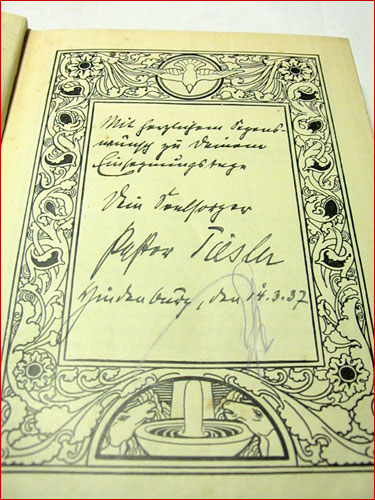 Mit herzlichem Segens-
wunsch zu Deinem
Einsegnungstage
Dein Seelsorger
Pastor Tiesler
Hindenburg, den 14.3.37